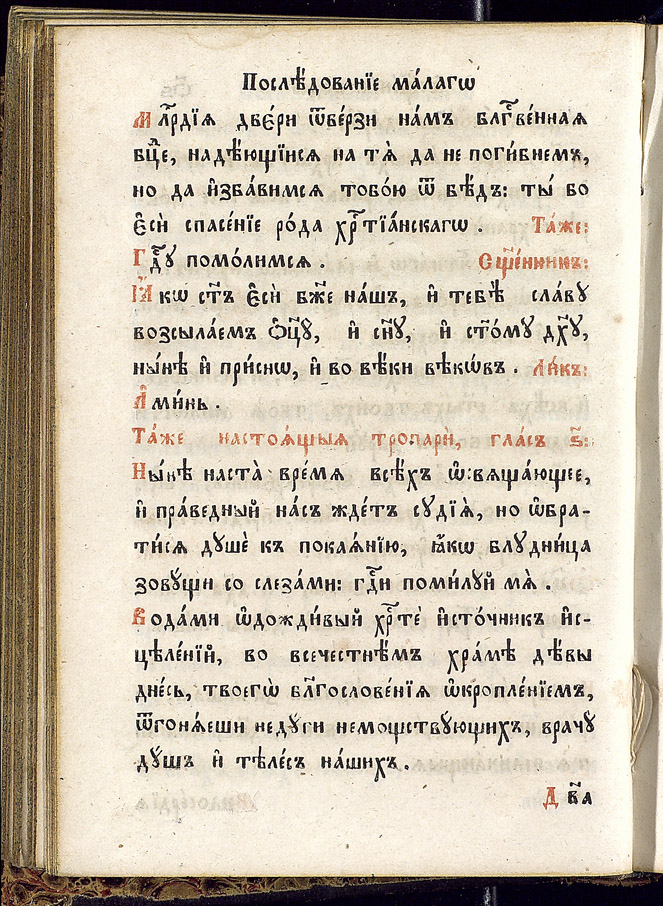 Послѣ́дованїе ма́лагѡ
М л҇рдїѧ две́ри ѿве́рзи на́мъ бл҃гве́ннаѧ
бц҃е, надѣ́ющїисѧ на тѧ̀ да не поги́бнемъ,
но да и҆зба́вимсѧ тобо́ю ѿ бѣ́дъ: ты́ бо
є҆сѝ спасе́нїе ро́да хрⷭ҇тїа́нскагѡ . Та́же:
Гдⷭ҇ꙋ помо́лимсѧ . Сщ҃е́нникъ:
Ꙗ҆́кѡ ст҃ъ є҆сѝ бж҃е на́шъ, и҆ тебѣ̀ сла́вꙋ
возсыла́емъ ѻ҆ц҃ꙋ̀, и҆ сн҃ꙋ, и҆ ст҃о́мꙋ дх҃ꙋ,
ны́нѣ и҆ при́снѡ, и҆ во вѣ́ки вѣкѡ́въ . Ли́къ:
А҆ми́нь .
Та́же настоѧ́щыѧ тропарѝ, гла́съ ѕ҃:
Ны́нѣ наста̀ вре́мѧ всѣ́хъ ѡ҆свѧща́ющее,
и҆ пра́ведный на́съ жде́тъ сꙋдїѧ̀, но ѡ҆бра-
ти́сѧ дꙋшѐ къ покаѧ́нїю, ꙗ҆́кѡ блꙋдни́ца
зовꙋ́щи со слеза́ми: гдⷭ҇и поми́лꙋй мѧ̀ .
Вода́ми ѡ҆дожди́вый хрⷭ҇тѐ и҆сто́чникъ и҆с-
цѣле́нїй, во всечестнѣ́мъ хра́мѣ дѣ́вы
дне́сь, твоегѡ̀ бл҃гослове́нїѧ ѡ҆кропле́нїемъ,
ѿгонѧ́еши недꙋ́ги немощствꙋ́ющихъ, врачꙋ̀
дꙋ́шъ и҆ тѣле́съ на́шихъ .
Д в҃а